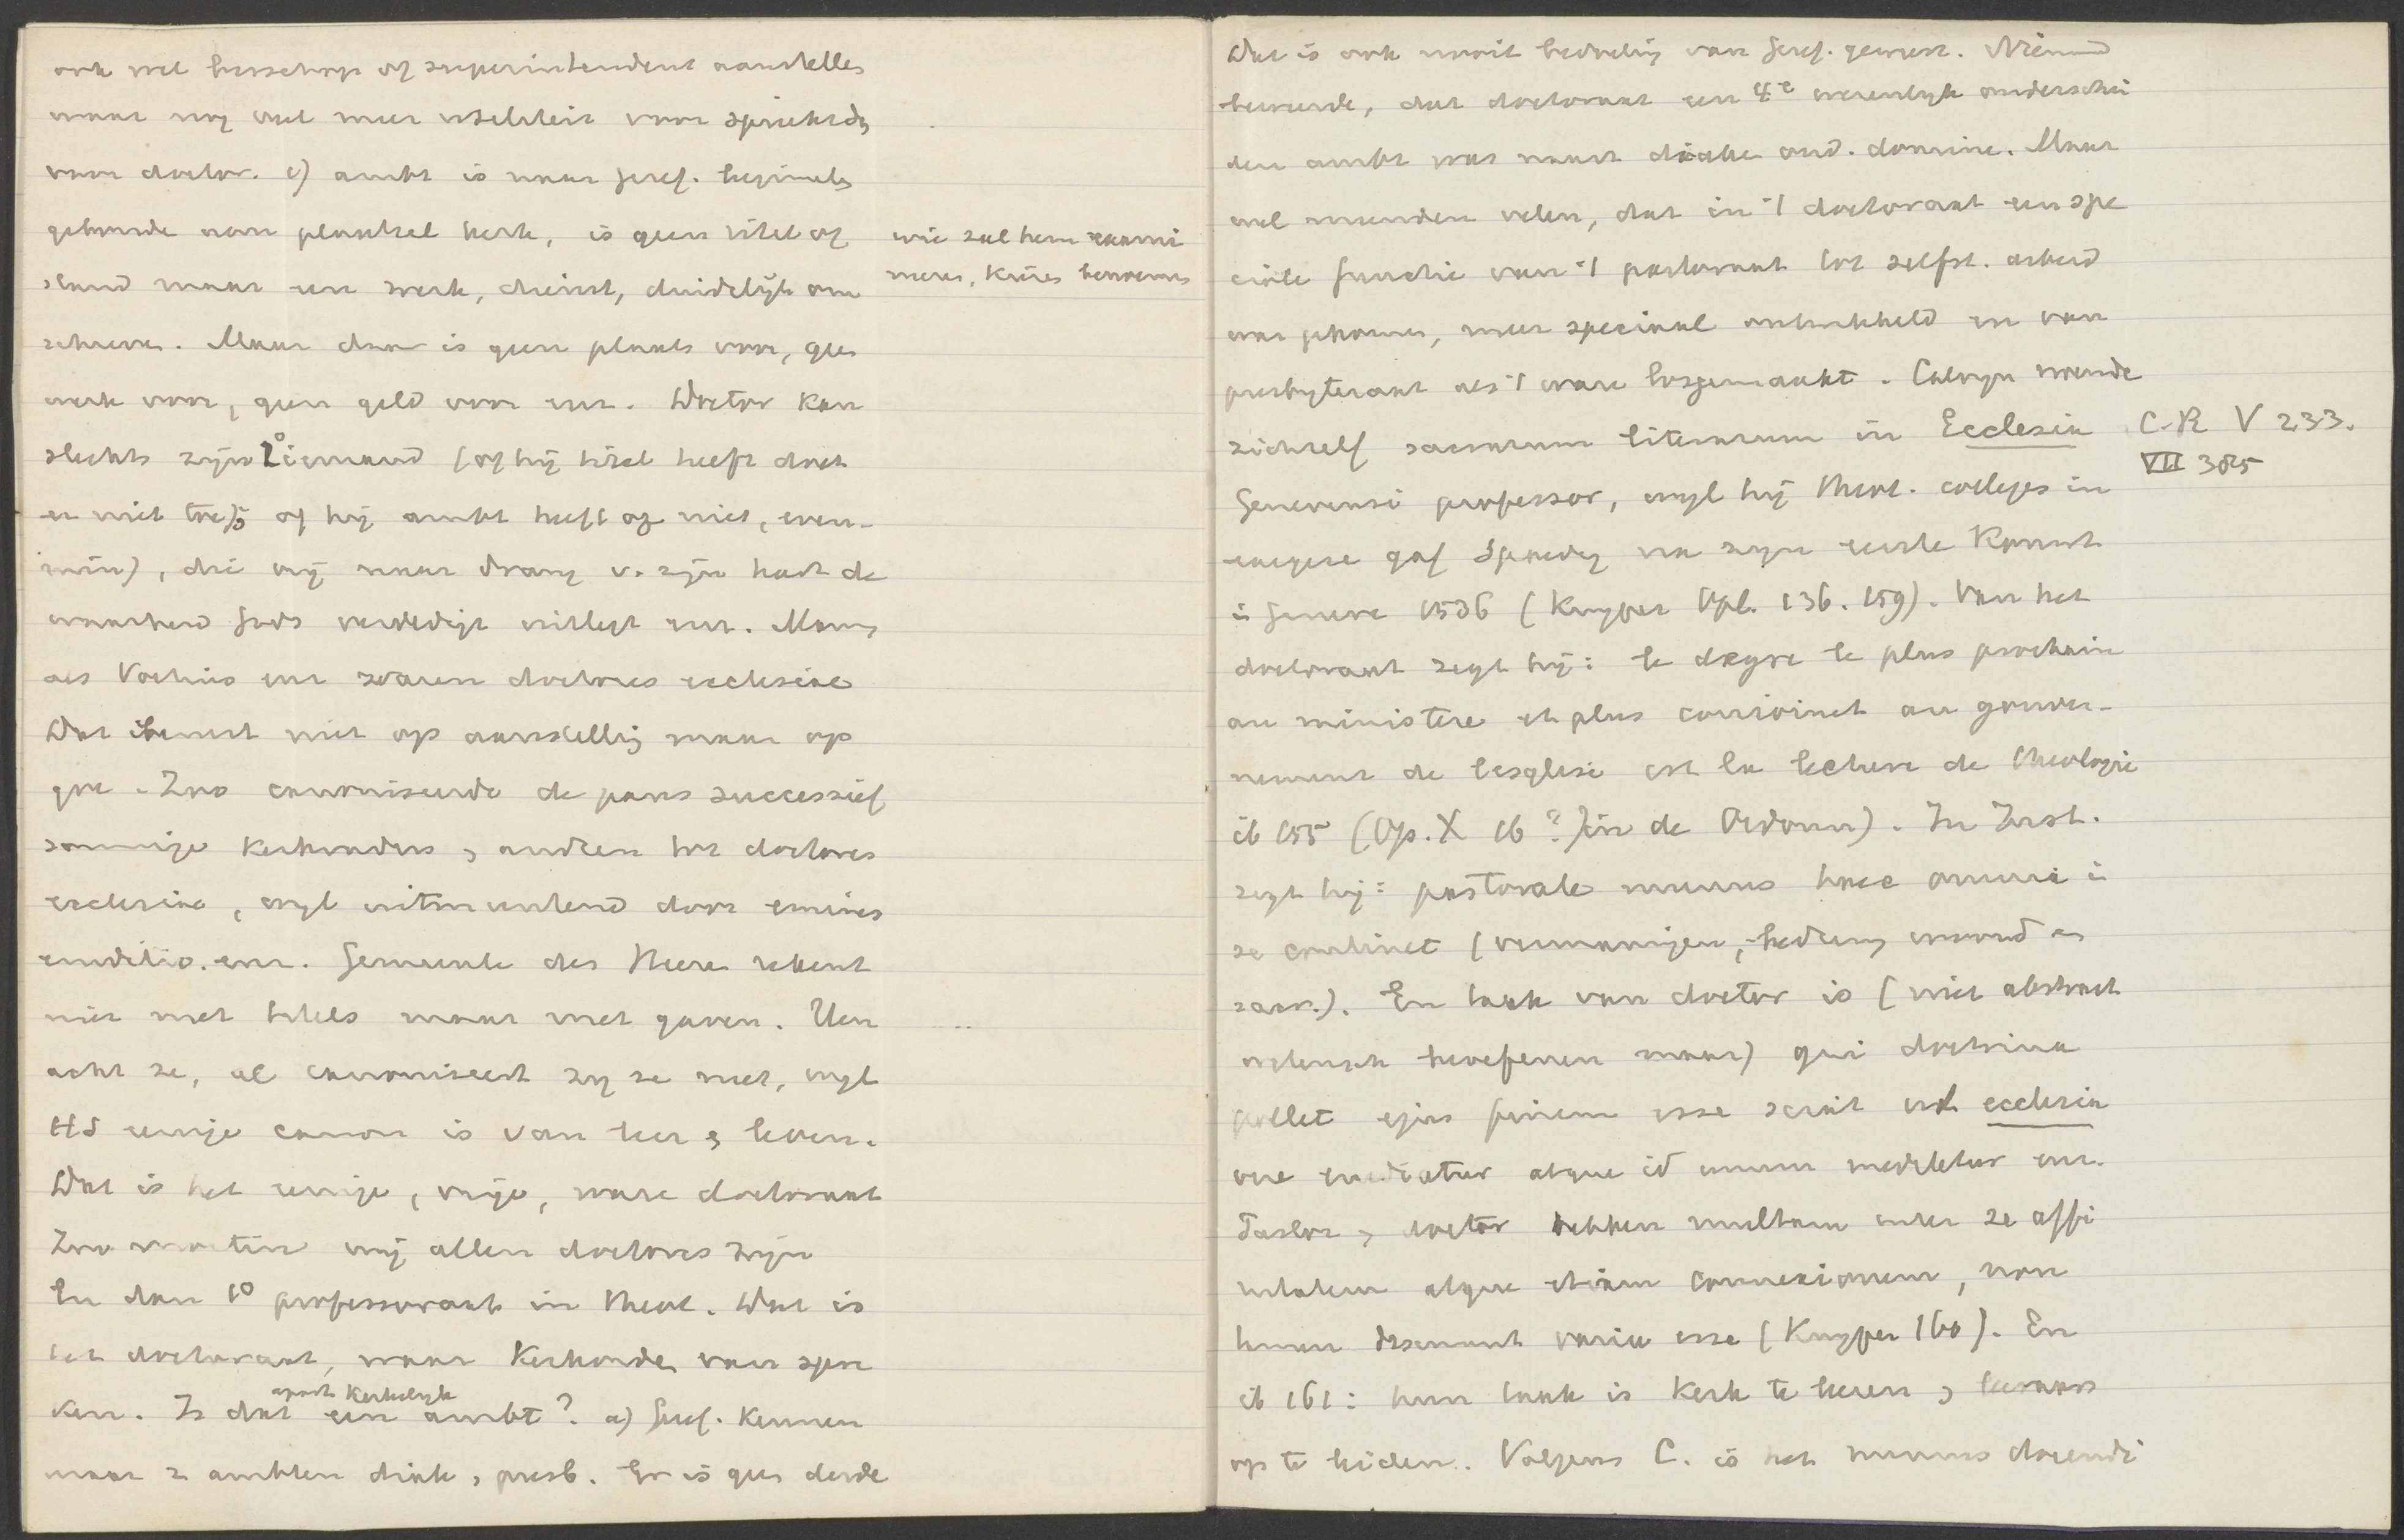 ook wel bisschop of superintendent aanstellen
maar nog veel meer
voor doctor. c) ambt is naar Geref. beginselen
gebonden aan plaatsel kerk, is geen titel of
stand maar een werk, dienst, duidelijk om
schreven. Maar daar is geen plaats voor, geen
werk voor, geen geld voor enz. Doctor kan
slechts zijn 1° iemand (of hij titel heeft doet
er niet toe, of hij ambt heeft of niet, even-
min), die vrij naar drang v. zijn hart de
waarheid Gods verdedigt uitlegt enz. Mannen
als Voetius enz waren doctores ecclesiae
Dat berust niet op aanstelling maar op
gave. Zoo canoniseerde de paus successief
sommige kerkvaders, anderen tot doctores
ecclesiae, wijl uitmuntend door eminens
eruditio. enz. Gemeente des Heeren rekent
niet met titels maar met gaven. Een
acht ze, al canoniseert zij ze niet, wijl
HS eenige canon is van leer & leven.
Dat is het eenige, vrije, ware doctoraat
Zoo moeten wij allen doctores zijn
En dan 1° professoraat in Theol. Dat is
het doctoraat, waar Kerkorden van spre
ken. Is dat een apart Kerkelijk ambt? a) Geref. Kennen
maar 2 ambten diak, presb. Er is geen derde
wie zal hem exami
neren, Kiezen benoemen
Dat is ook nooit bedoeling van Geref. geweest. Niemand
beweerde, dat doctoraat een 4e wezenlijk onderschei
den ambt was naast diaken oud. dominé. Maar
wel meenden velen, dat in 't doctoraat een spe
ciale functie van 't pastoraat tot zelfst. arbeid
was gekomen, meer speciaal ontwikkeld en van
presbyteraat als 't ware losgemaakt. Calvijn noemde
zichzelf sacrarum literarum in Ecclesia
Genevensi professor, wijl hij theol. colleges in
exegese gaf spoedig na zijn eerste Komst
in Geneve 1536 (Kuyper Opl. 136. 159). Van het
doctoraat zegt hij: le degre le plus prochain
au ministere et plus conioinct au gouver-
nement de lesglise est la lecture de theologie
ib 155 (Op. X 16?) in de Ordonn). In Inst.
zegt hij: pastorale munus haec omnia in
se continet (vermaningen, bediening woord en
sacr.). En taak van doctor is (niet abstract
wetensch beoefenen maar) qui doctrina
pollet ejus finem esse sciat ut ecclesia
vere aedificetur atque id unum meditetur enz.
Pastor, doctor hebben multam inter se affi
nitatem atque etiam connexionem, non
(Kuyper 160). En
ib 161: hun taak is Kerk te leeren, leeraars
op te leiden. Volgens C. is het munus docendi
C.R V 233.
VII 385